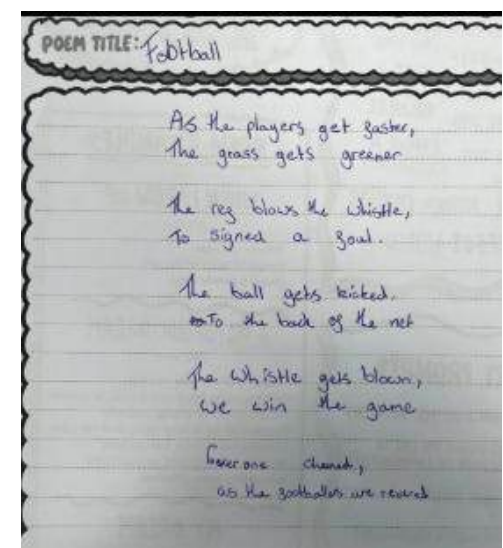 POEM TITLE: Football
As the players get faster,
The grass gets greener
The ref blows the whistle,
To signed a goal.
The ball gets kicked.
To the back of the net
The whistle gets blown,
We win the game
cheered,
as the footballers are